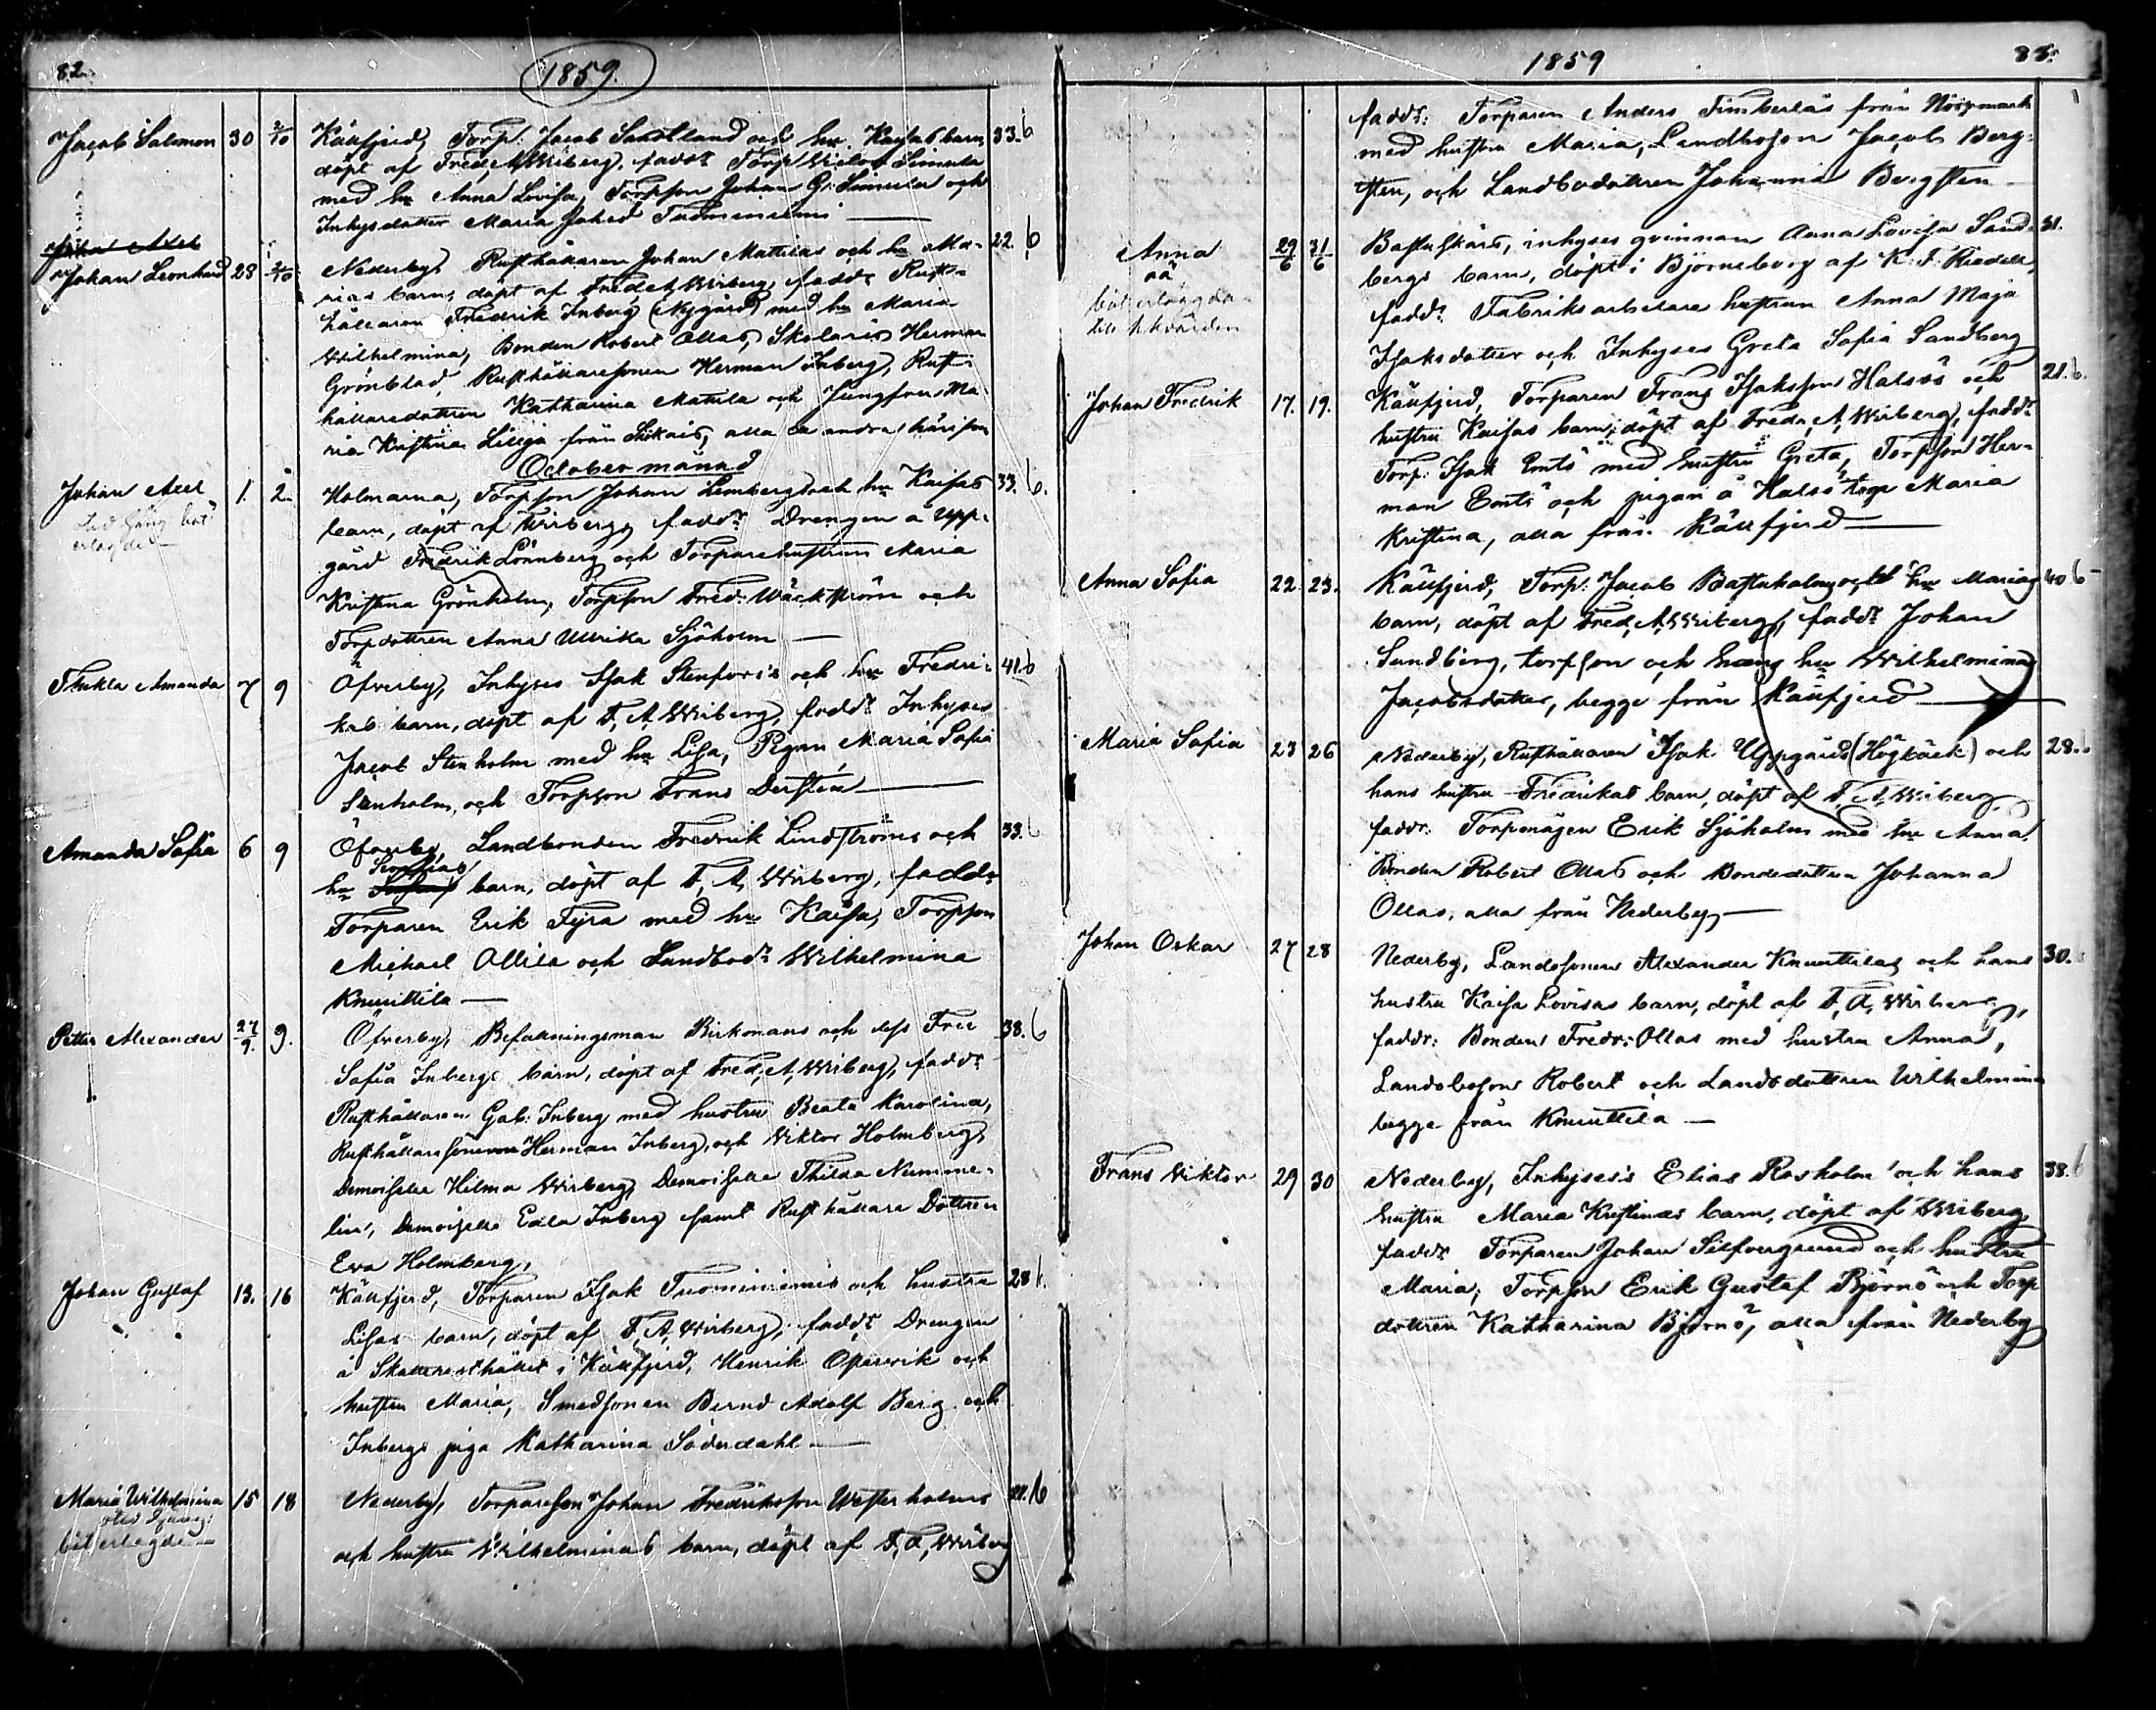 82.
1859.
Jacob Salomon 30 2/10 Källfjerd, Torp. Jacob Sandlund och hu Kaisas barn, 33. 6
döpt af Fred. A. Wiberg, faddr Torp Victor Simula
med hu Anna Lovisa, Torpson Johan G: Simula och
Inhysdotter Maria Tuominiemi
Johan Axel
Johan Leonhard 28 2/10 Nederby, Rusthållaren Johan Mattilas och hu Ma- 22. 6
rias barn, döpt af Fred. A. Wiberg, faddr Rust-
hållaren Fredrik Inberg (Nygård) med hu Maria
Wilhelmina, Bonden Robert Ollas, Skolaris Herman
Grönblad, Rusthållaresonen Herman Inberg, Rust-
hållaredottren Katharina Mattila och Jungfrun Ma
ria Kristina Lillja från alla de andra härifrån
October månad
Johan Axel 1. 2. Holmarna, Torpson Johan Lemberg och hu Kaisas 33. 6.
barn, döpt af Wiberg, faddr Drengen å Upp-
erlagde
gård Fredrik Lönnberg och Torparehustrun Maria
Kristina Grönholm, Torpson Fred: Wäckström och
Torpdottren Anna Ullrika Sjöholm
Thekla Amanda 7 9 Öfverby, Inhyses Isak Stenfors's och hu Fredri- 41. 6
kas barn, döpt af F. A. Wiberg, faddr Inhyses
Jacob Stenholm med hu Lisa, Pigan Maria Sofia
Stenholm, och Torpson Frans Dersten
Amanda Sofia 6 9 Öfverby, Landbonden Fredrik Lindströms och 33. 6
hu Sofias barn, döpt af F. A. Wiberg, faddr
Torparen Erik Fyra med hu Kaisa, Torpson
Michael Ollila och Landbodr Wilhelmina
Knuuttila
Petter Alexander 27/9. 9. Öfverby, Befallningsman Birkmans och dess Fru 38. 6
Sofia Inbergs barn, döpt af Fred. A. Wiberg, faddr
Rusthållaren Gab: Inberg med hustru Beata Karolina,
Rusthållaresönerna Herman Inberg, och Viktor Holmberg,
Demoiselle Hilma Wiberg, Demoiselle Thilda Numme-
lin, Demoiselle Edla Inberg samt Rusthållare Dottren
Eva Holmberg,
Johan Gustaf 13. 16 Källfjerd, Torparen Isak Tuominiemis och hustru 28
Lisas barn, döpt af F. A. Wiberg, faddr Drengen
å i Källfjerd, Henrik och
hustru Maria, Smedsonen Bernd Adolf Berg och
Inbergs piga Katharina Söderdahl
Maria Wilhelmina 15 18 Nederby, Torpareson Johan Fredriksson Westerholms 6
böt erlagde
och hustru Wilhelminas barn, döpt af F. A. Wiberg
1859
83.
faddr: Torparen Anders Timberläs från Norrmark
med hustru Maria, Landboson Jacob Berg-
sten, och Landbodottren Johanna Bergsten
Anna 29/6 31/6 Bastuskärs, inhyses qvinnan Anna Lovisa Sand- 31.
oä
bergs barn, döpt i Björneborg af K. F. Riedell,
böt erlagda
faddr Fabriksarbetare hustrun Anna Maja
Isaksdotter och Inhyses Greta Sofia Sandberg
Johan Fredrik 17. 19. Källfjerd, Torparen Frans Isaksson Halsös och 21. 6.
hustru Kaisas barn, döpt af Fred. A. Wiberg, faddr
Torp: Isak Entis med hustru Greta, Torpson Her-
man Entis och pigan å Halsö torp Maria
Kristina, alla från Källfjerd
Anna Sofia 22. 23. Källfjerd, Torp: Jacob Bastuholms och hu Marias 40 6
barn, döpt af Fred. A. Wiberg, faddr Johan
Sundberg, torpson och hans hu Wilhelmina
Jacobsdotter, begge från Källfjerd
Maria Sofia 23 26 Nederby, Rusthållaren Isak Uppgårds (Högback) och 28.
hans hustru Fredrikas barn, döpt af F. A. Wiberg,
faddr. Torpmågen Erik Sjöholm med hu Anna,
Bonden Robert Ollas och Bondedottren Johanna
Ollas, alla från Nederby
Johan Oskar 27 28 Nederby, Landbosonen Alexander Knuuttilas och hans 30.
hustru Kaisa Lovisas barn, döpt af F. A. Wiberg,
faddr: Bonden Fredr: Ollas med hustru Anna,
Landboson Robert och Landbdottren Wilhelmina
begge från Knuuttila
Frans Viktor 29 30 Nederby, Inhyses's Elias Rosholm och hans 38. 6
hustru Maria Kristinas barn, döpt af Wiberg,
faddr Torparen Johan Silfvergrund och hustru
Maria, Torpson Erik Gustaf Björnö och Torp
dottren Katharina Björnö, alla från Nederby